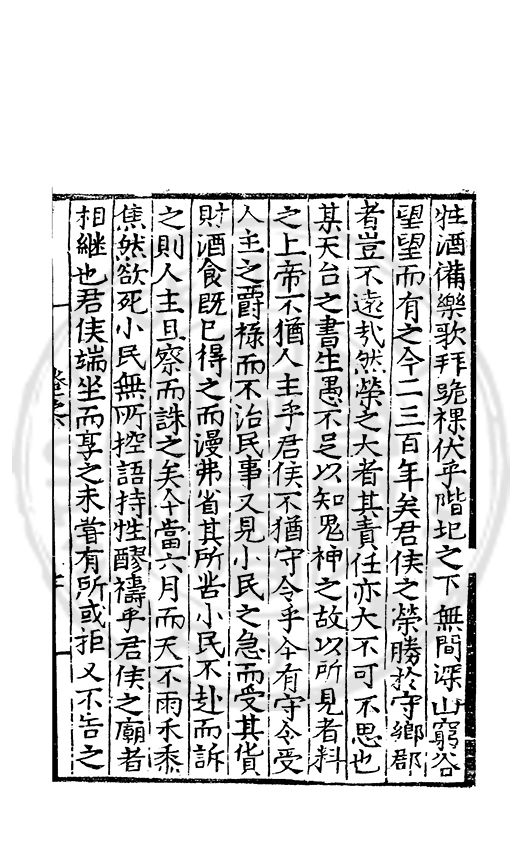 牲酒備樂歌拜跪裸伏乎階圯之下無間深山窮谷
望望而有之今二三百年矣君侯之榮勝於守鄉郡
者豈不遠哉然榮之大者其責任亦大不可不思也
某天台之書生愚不足以知鬼神之故以所見者料
之上帝不猶人主乎君侯不猶守令乎今有守令受
人主之爵祿而不治民事又見小民之急而受其貨
財酒食既已得之而漫弗省其所苦小民不赴而訴
之則人主且察而誅之矣今當六月而天不雨禾黍
焦然欲死小民無所控語持牲醪禱乎君侯之廟者
相継也君侯端坐而享之未嘗有所或拒又不告之